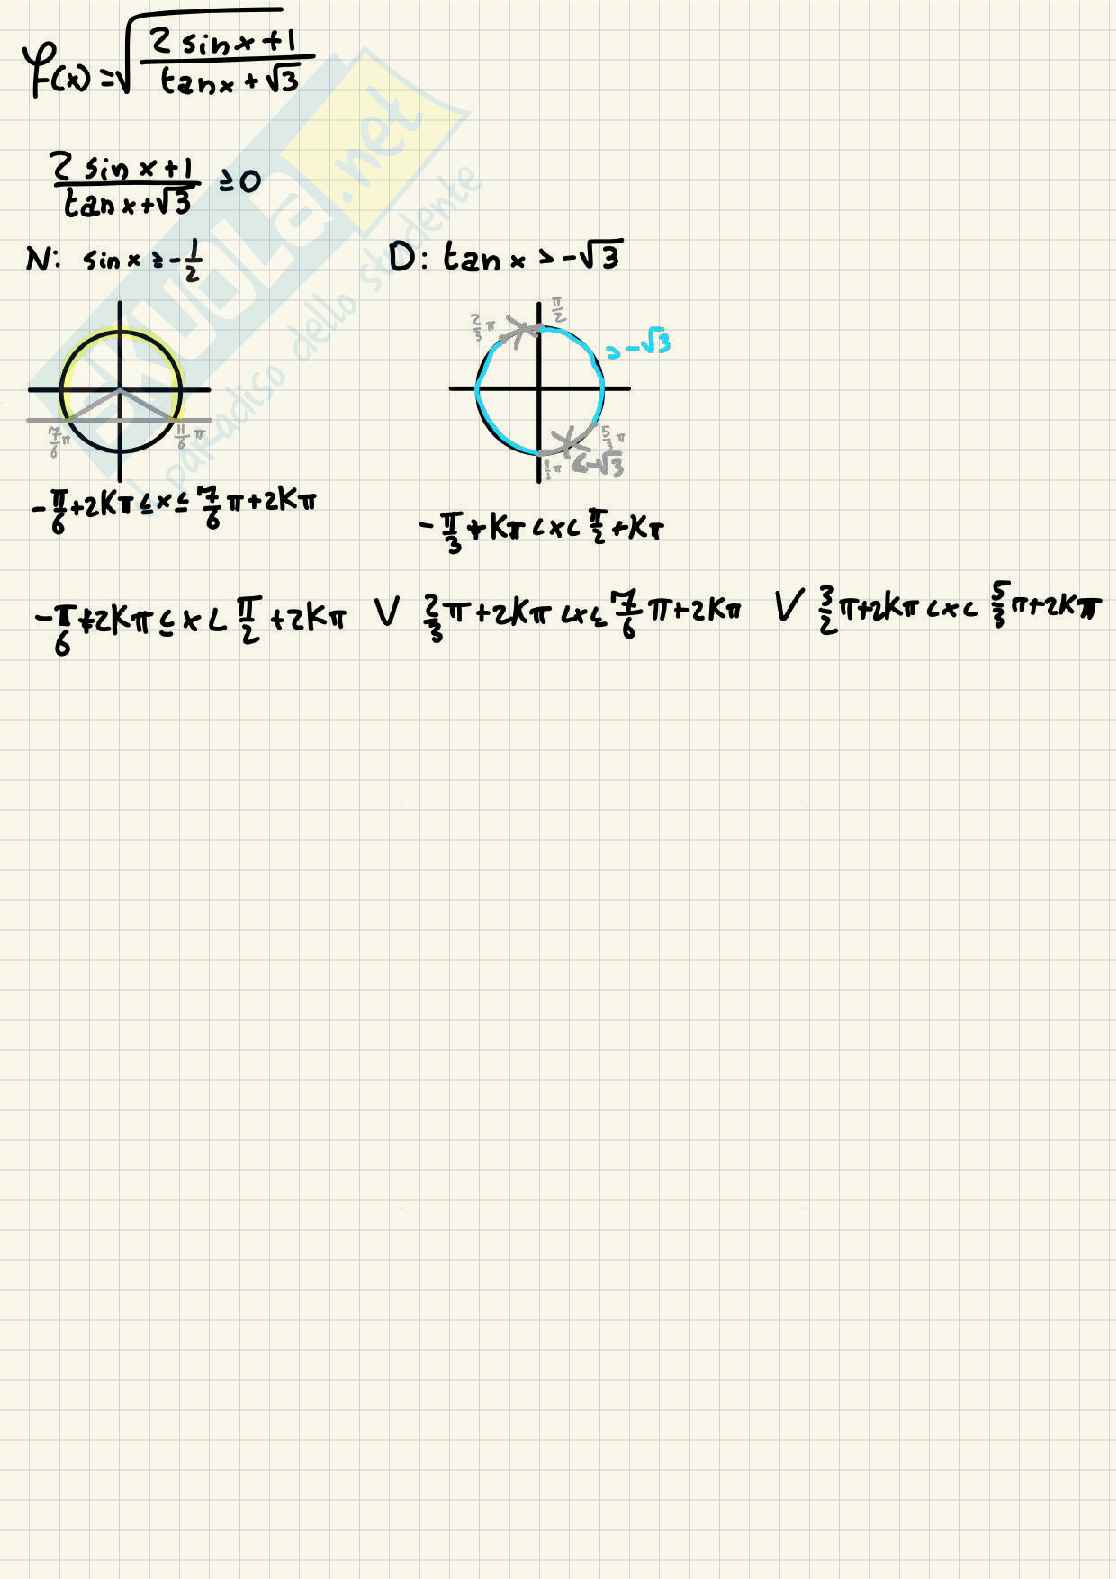 f(x)=√((2 sin x+1)/(tan x+√3))
(2 sin x+1)/(tan x+√3) ≥0
N: sin x ≥ -1/2 D: tan x > -√3
2/3 π π/2
> -√3
7/6 π 11/6 π 5/3 π
π < -√3
-π/6+2Kπ ≤ x ≤ 7/6 π+2Kπ
-π/3+Kπ < x < π/2+Kπ
-π/6+2Kπ ≤ x < π/2+2Kπ V 2/3 π+2Kπ < x ≤ 7/6 π+2Kπ V 3/2 π+2Kπ < x < 5/3 π+2Kπ
SKUOLA.net
il paradiso dello studente